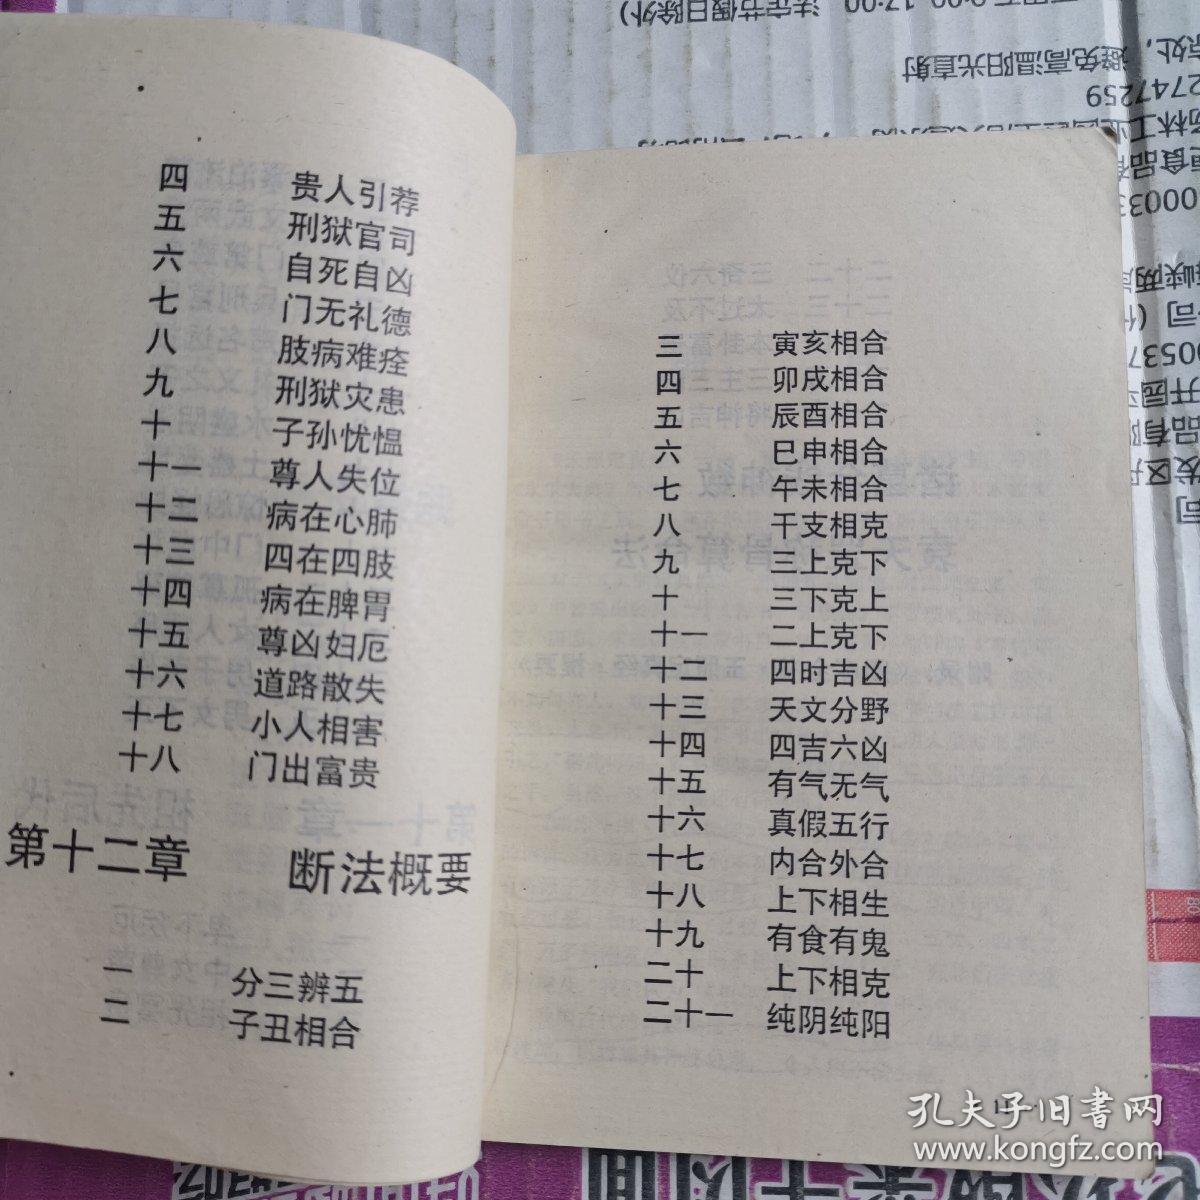 四 贵人引荐
五 刑狱官司
六 自死自凶
七 门无礼德
八 肢病难痊
九 刑狱灾患
十 子孙忧愠
十一 尊人失位
十二 病在心肺
十三 四在四肢
十四 病在脾胃
十五 尊凶妇厄
十六 道路散失
十七 小人相害
十八 门出富贵
第十二章 断法概要
一 分三辨五
二 子丑相合
三 寅亥相合
四 卯戌相合
五 辰酉相合
六 巳申相合
七 午未相合
八 干支相克
九 三上克下
十 三下克上
十一 二上克下
十二 四时吉凶
十三 天文分野
十四 四吉六凶
十五 有气无气
十六 真假五行
十七 内合外合
十八 上下相生
十九 有食有鬼
二十 上下相克
二十一 纯阴纯阳
孔夫子旧书网
www.kongfz.com
法定节假日除外)
避免高温阳光直射
2747259